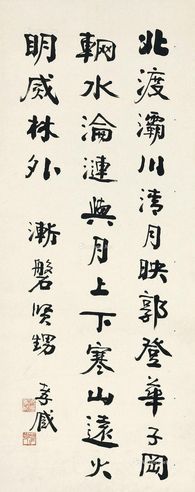 北渡灞川清月映郭登華子岡
輞水淪漣與月上下寒山遠火
明烕林外 漸磐賢甥 孝臧